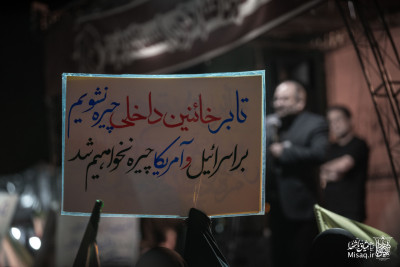 تا بر خائنین داخلی چیره نشویم
بر اسرائیل و آمریکا چیره نخواهیم شد
Misaq.ir